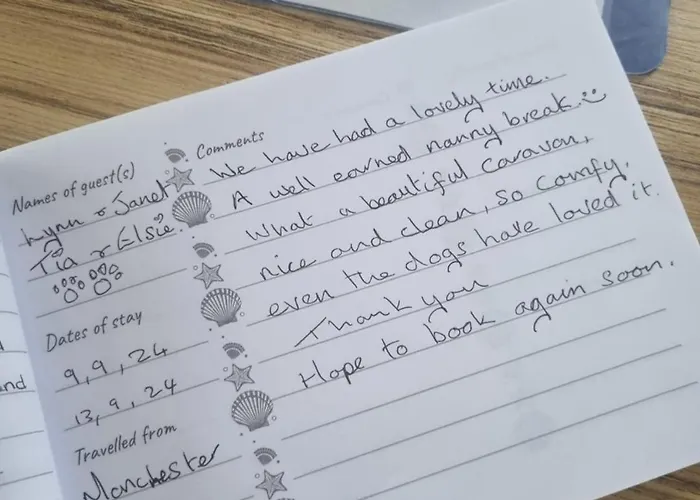 Names of guest(s)
Lynn & Janet
Tia & Elsie
Dates of stay
9,9,24
13,9,24
Travelled from
Manchester
Comments
We have had a lovely time.
A well earned nanny break.
What a beautiful caravan,
nice and clean, so comfy,
even the dogs have loved it.
Thank you
Hope to book again soon.
nd